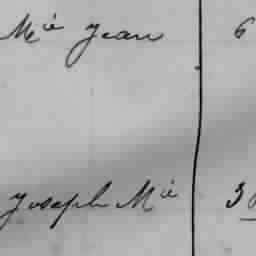 Mie Jean 6
Joseph Mie 3